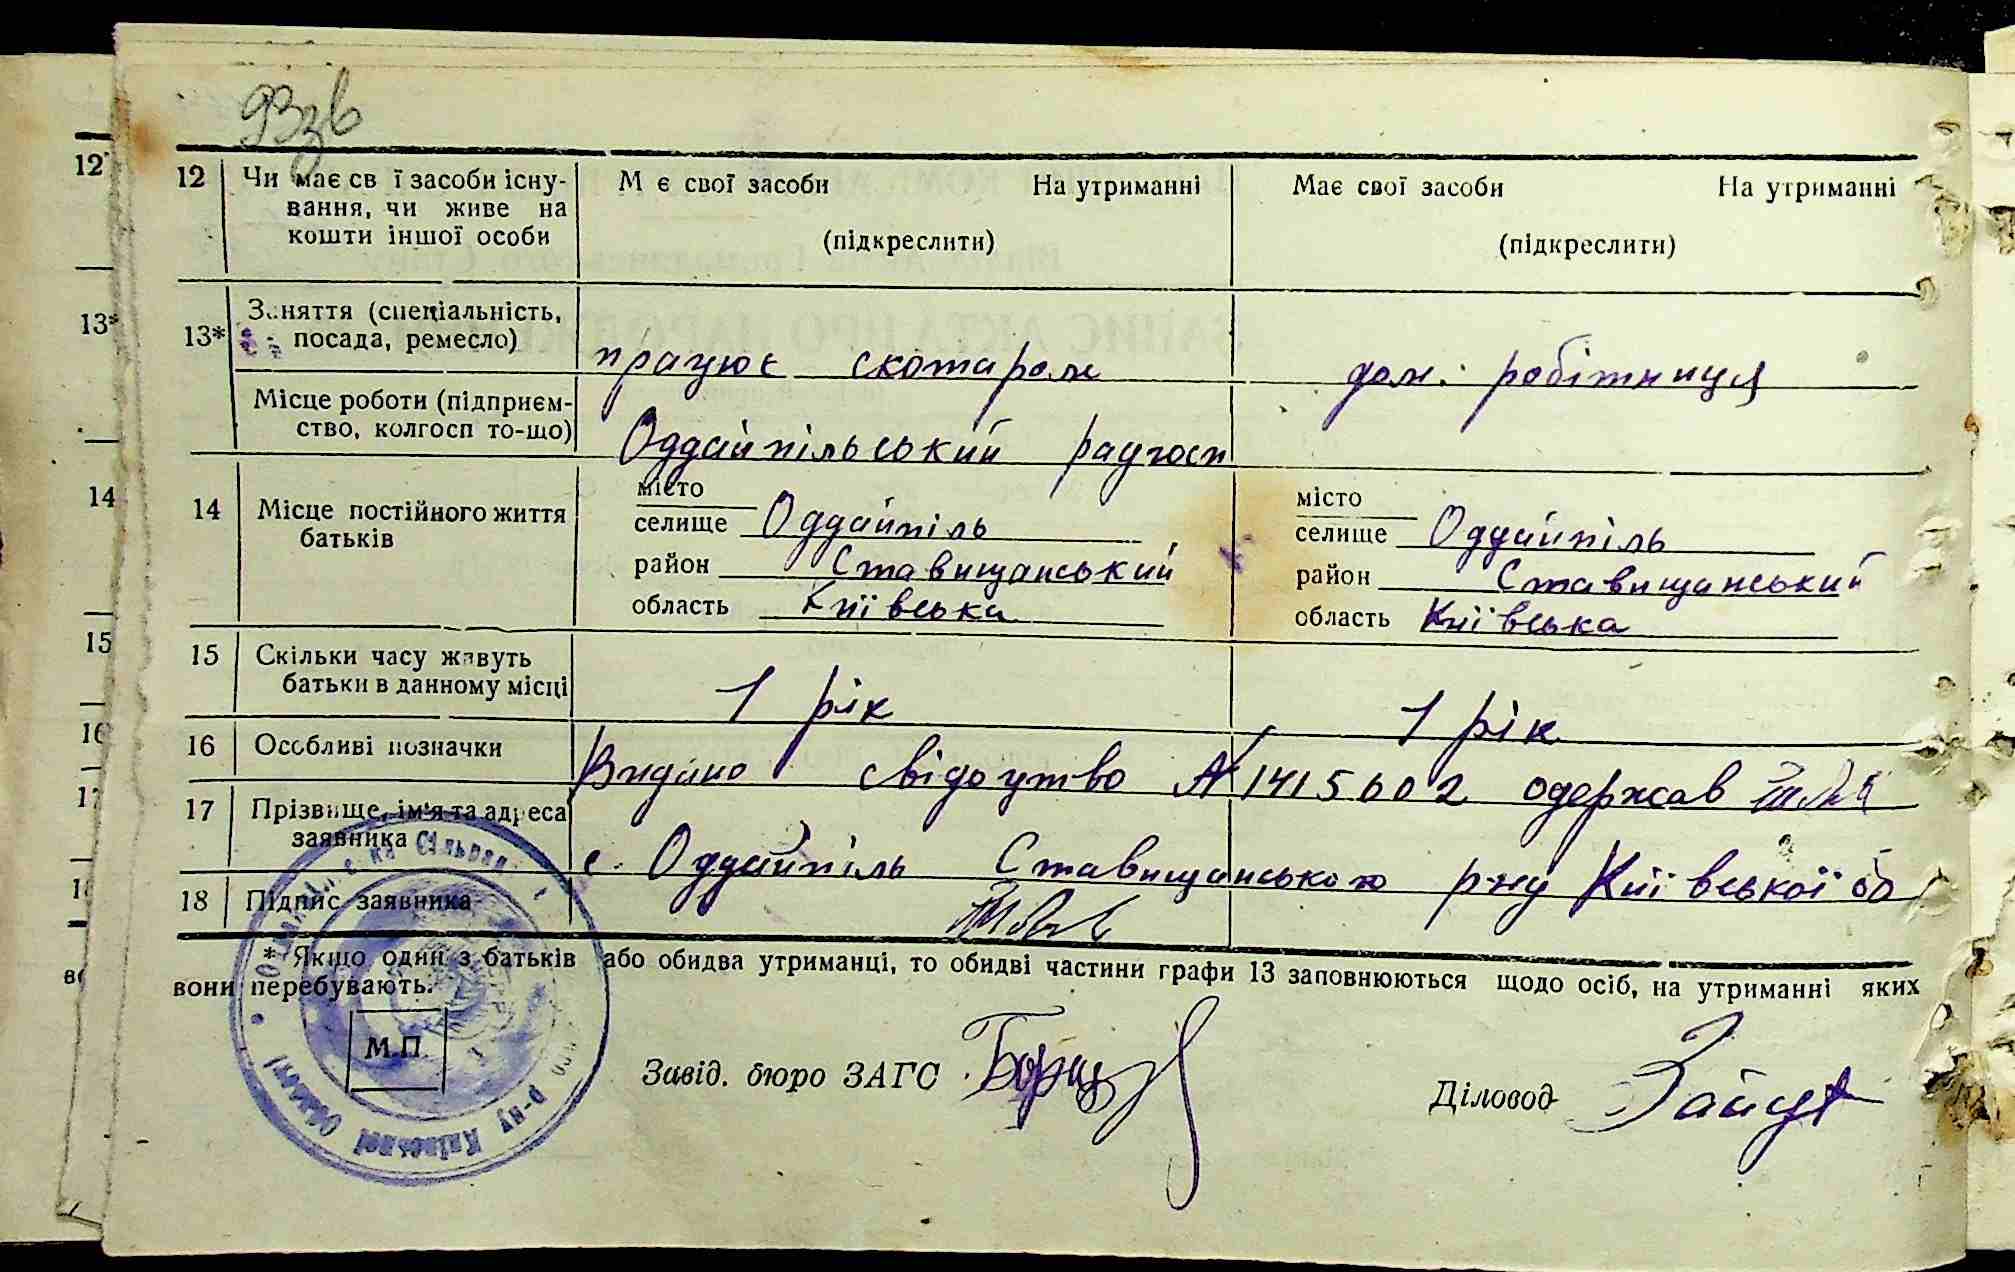 93зв
12 Чи має св ї засоби існу- М є свої засоби На утриманні Має свої засоби На утриманні
вання, чи живе на
кошти іншої особи (підкреслити) (підкреслити)
13* Заняття (спеціальність,
посада, ремесло) працює скотаром дом. робітниця
Місце роботи (підприєм-
ство, колгосп то-що) Оддайпільський радгосп
14 Місце постійного життя
батьків
місто
селище Оддайпіль
район Ставищанський
область Київська
місто
селище Оддайпіль
район Ставищанський
область Київська
15 Скільки часу живуть
батьки в данному місці 1 рік 1 рік
16 Особливі позначки Видано свідоцтво № 1415602 одержав
17 Прізвище, ім'я та адреса
заявника с. Оддайпіль Ставищанського р-ну Київської об
18 Підпис заявника
* Якщо один з батьків або обидва утриманці, то обидві частини графи 13 заповнюються щодо осіб, на утриманні яких
вони перебувають.
М.П.
Завід. бюро ЗАГС
Діловод
р-ну Київської Області
12
13*
14
15
16
17
18